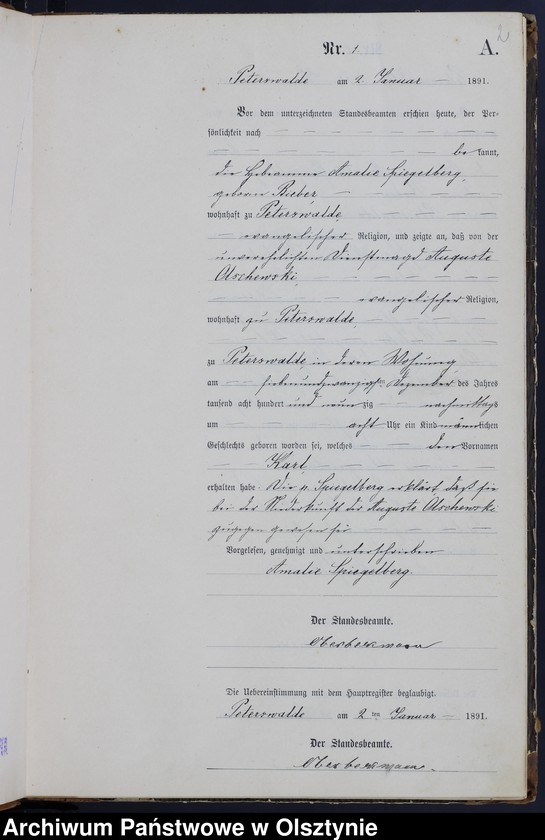 Nr. 1
A.
Peterswalde am 2 Januar 1891.
Vor dem unterzeichneten Standesbeamten erschien heute, der Per-
sönlichkeit nach
bekannt,
die Hebeamme Amalie Spiegelberg,
geboren Bieber
wohnhaft zu Peterswalde,
evangelischer Religion, und zeigte an, daß von der
unverehelichten Dienstmagd Auguste
Olschewski,
evangelischer Religion,
wohnhaft zu Peterswalde,
zu Peterswalde, in deren Wohnung
am siebenundzwanzigsten Dezember des Jahres
tausend acht hundert und neunzig nachmittags
um acht Uhr ein Kind männlichen
Geschlechts geboren worden sei, welches den Vornamen
Karl
erhalten habe. Die p. Spiegelberg erklärt, daß sie
bei der Niederkunft der Auguste Olschewski
zugegen gewesen sei
Vorgelesen, genehmigt und unterschrieben
Amalie Spiegelberg.
Der Standesbeamte.
Die Uebereinstimmung mit dem Hauptregister beglaubigt.
Peterswalde am 2ten Januar 1891.
Der Standesbeamte.
Archiwum Państwowe w Olsztynie